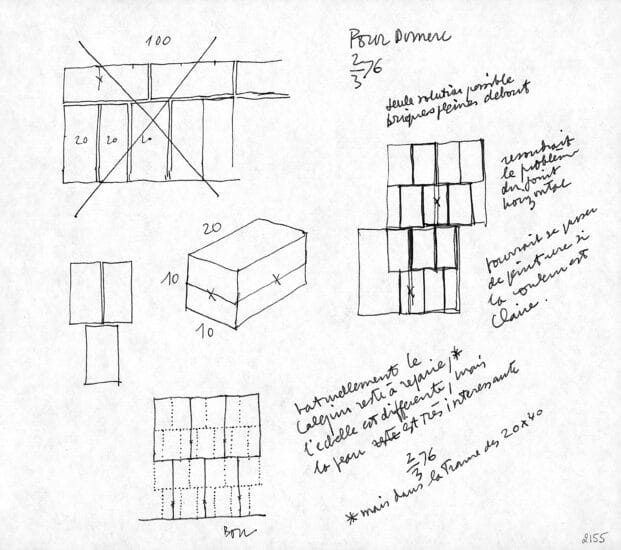 100
20 20 20
Pour Dumerc
2/3/76
seule solution possible
briques pleines debout
resoudrait
le problem
du joint
horizontal
pourrait se passer
de peinture si
la couleur est
claire.
20
10
10
naturellement le
calepin reste à refaire,*
l'échelle est différente, mais
la peau reste est très interessante
2/3/76
* mais dans la trame des 20x40
BON
2155